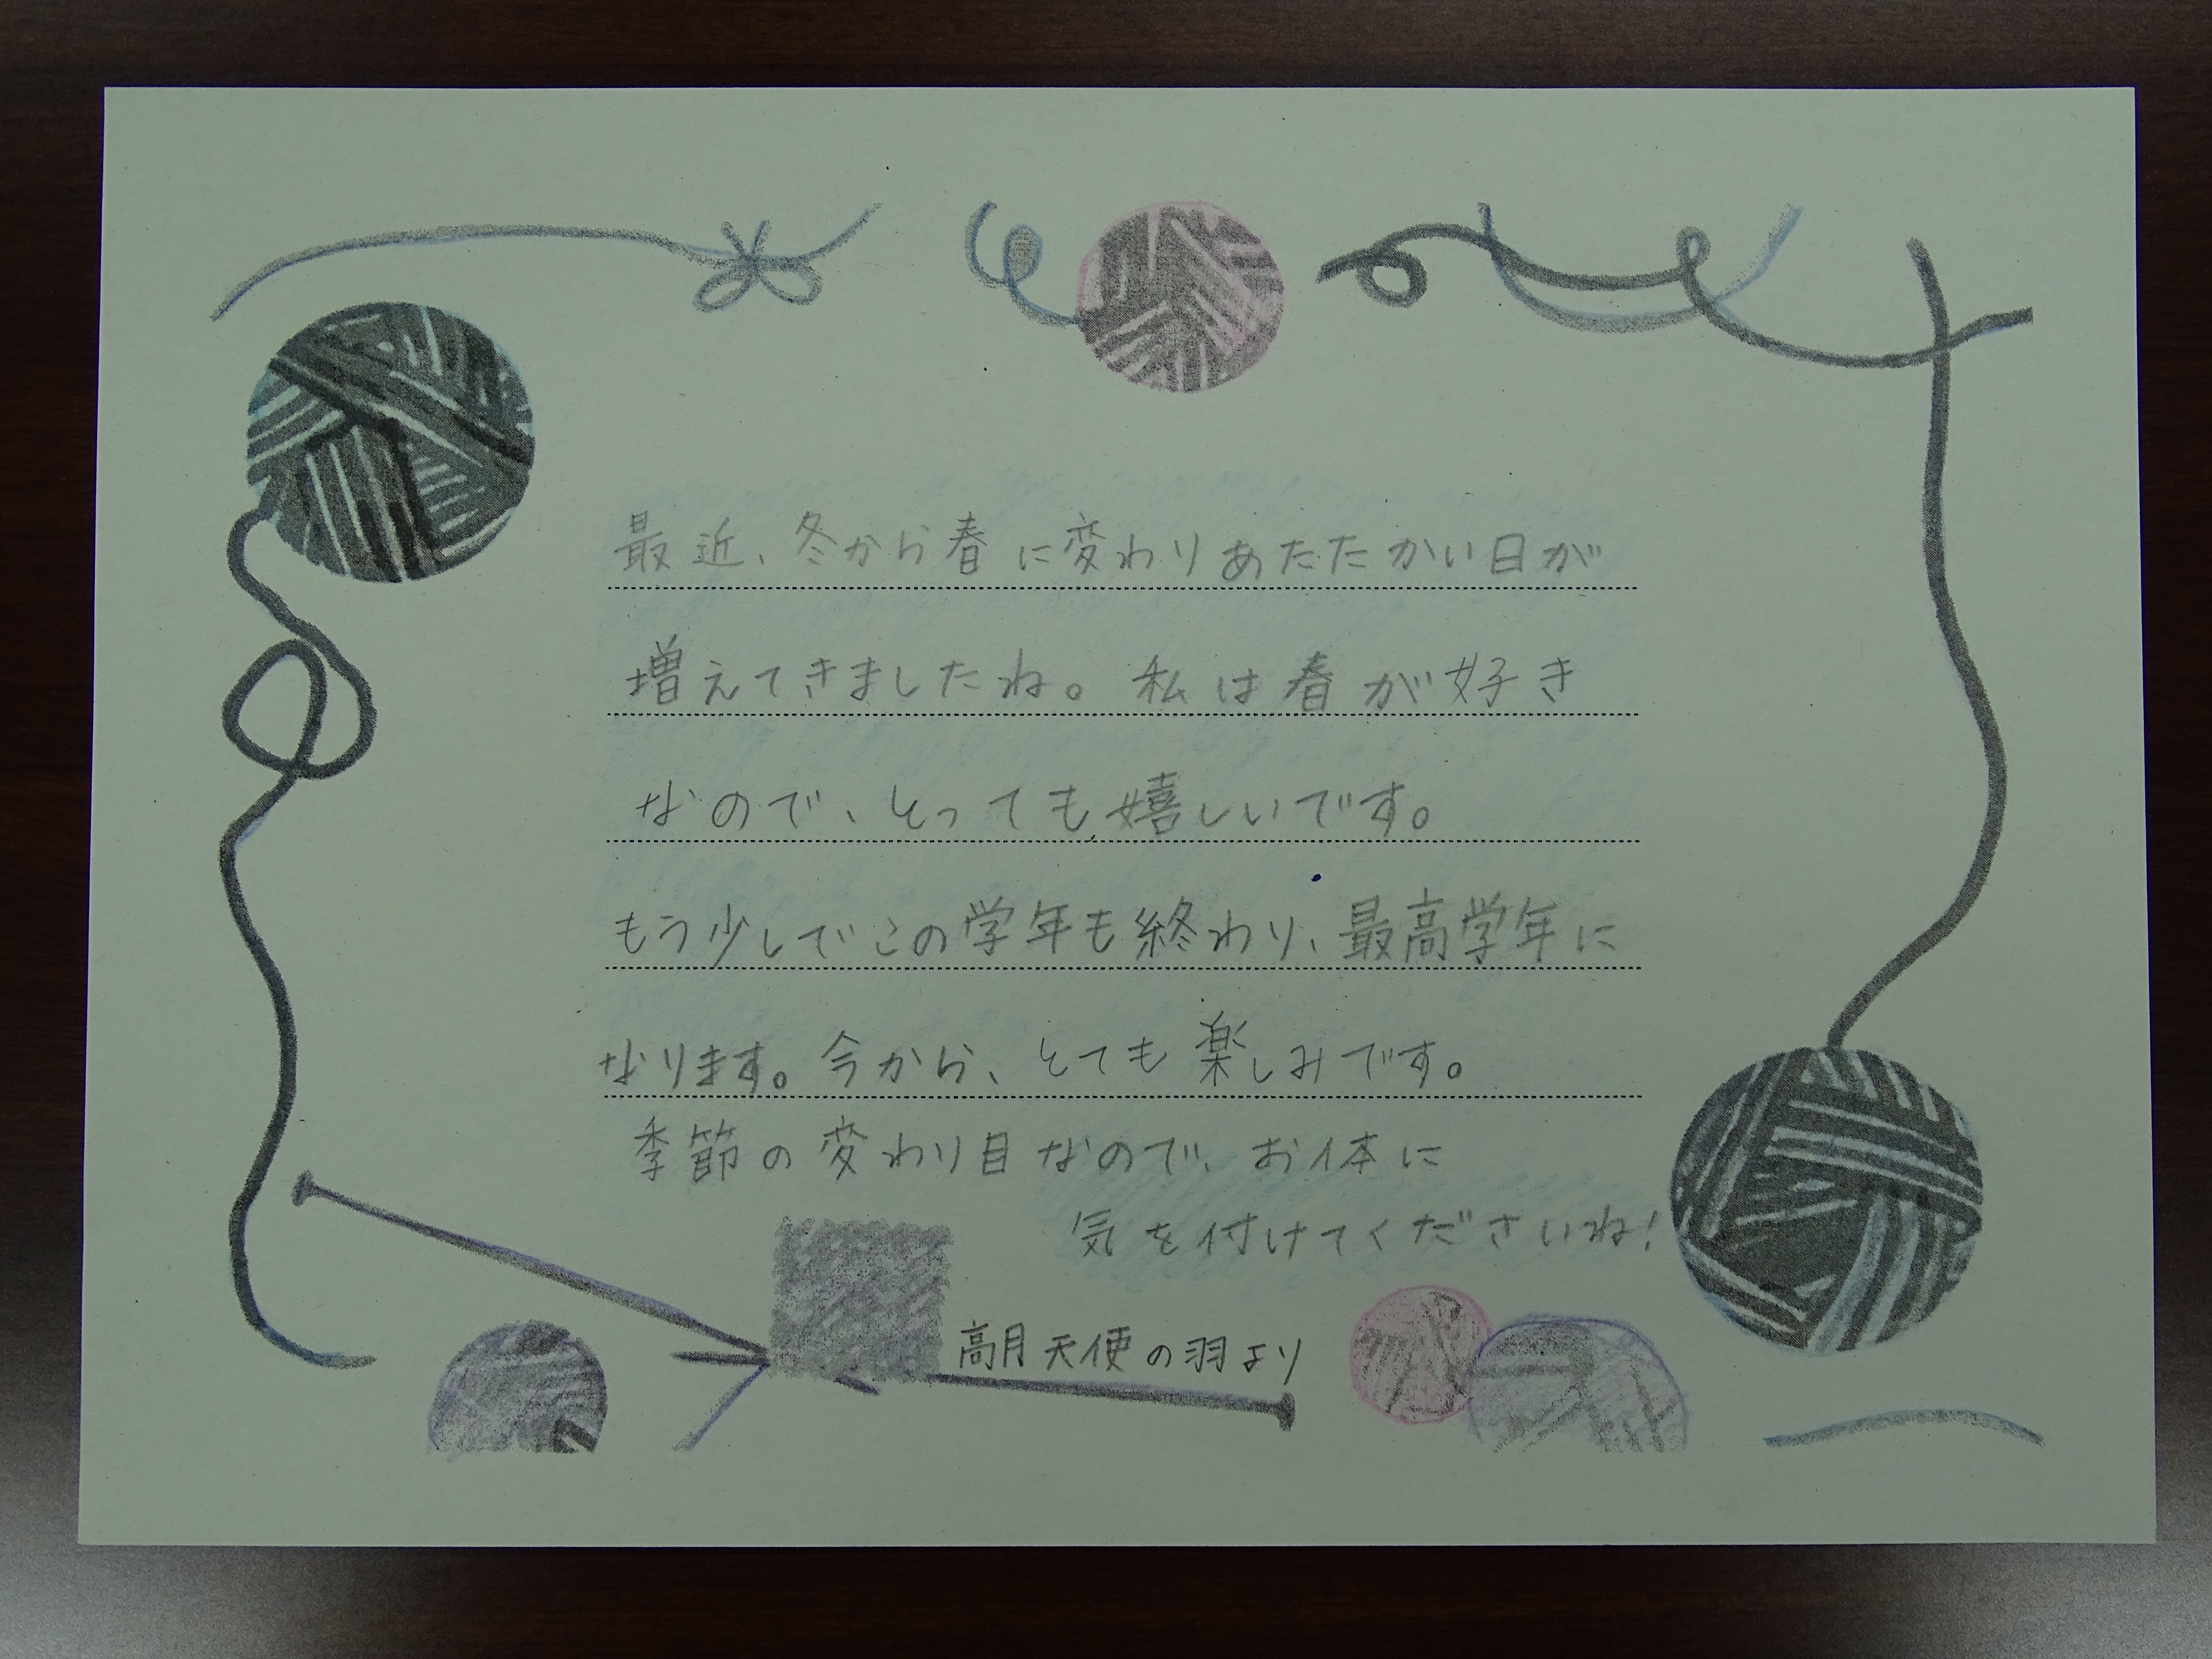 最近、冬から春に変わりあたたかい日が
増えてきましたね。私は春が好き
なので、とっても嬉しいです。
もう少しでこの学年も終わり、最高学年に
なります。今から、とても楽しみです。
季節の変わり目なので、お体に
気を付けてくださいね!
高月天使の羽より